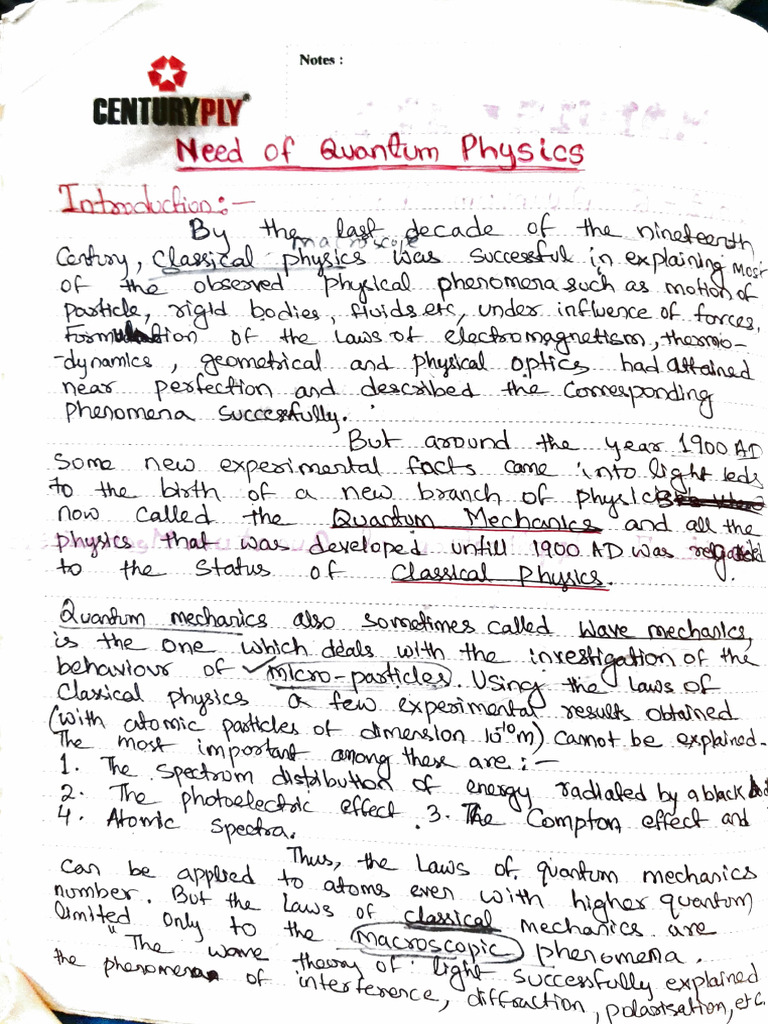 Notes :
CENTURYPLY®
Need of Quantum Physics
Introduction:-
By the last decade of the nineteenth
macroscopic
Century, Classical physics was successful in explaining most
of the observed physical phenomena such as motion of
particle, rigid bodies, fluids etc, under influence of forces.
Formulation of the laws of electromagnetism, thermo-
-dynamics, geometrical and physical optics had attained
near perfection and described the corresponding
phenomena successfully.
But around the year 1900 AD
some new experimental facts came into light leds
to the birth of a new branch of physics
now called the Quantum Mechanics and all the
physics that was developed untill 1900 AD was
to the status of Classical Physics.
Quantum mechanics also sometimes called wave mechanics,
is the one which deals with the investigation of the
behaviour of ✓micro-particles. Using the laws of
Classical physics a few experimental results obtained
(with atomic particles of dimension 10⁻¹⁰m) cannot be explained.
The most important among these are :-
1. The Spectrum distribution of energy radiated by a black
2. The photoelectric effect. 3. The Compton effect and
4. Atomic Spectra.
Thus, the laws of quantum mechanics
can be applied to atoms even with higher quantum
number. But the laws of classical mechanics are
limited only to the macroscopic phenomena.
"The wave theory of light successfully explained
the phenomena of interference, diffraction, polarisation, etc.